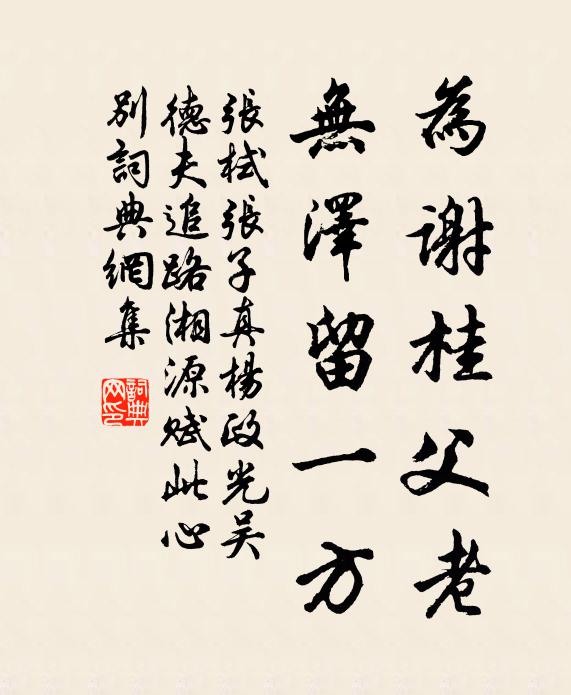 為謝桂父老
無澤留一方
張栻張子真楊政光吳
德夫追路湘源賦此心
別詞典網集
詞典网印